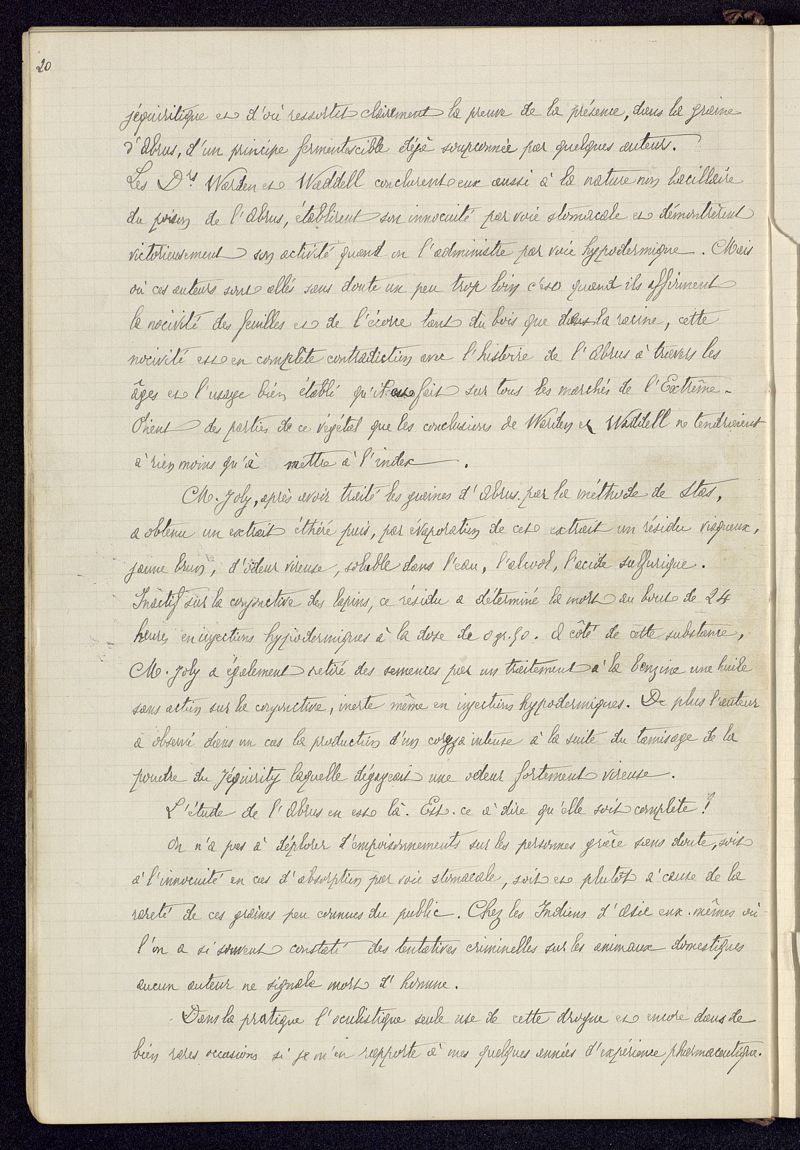 20
jéquiritique et d'où ressortit clairement la preuve de la présence, dans la graine
d'Abrus, d'un principe fermentescible déjà soupçonnée par quelques auteurs.
Les Drs Warden et Waddell conclurent eux aussi à la nature non bacillaire
du poison de l'Abrus, établirent son innocuité par voie stomacale et démontrèrent
victorieusement son activité quand on l'administre par voie hypodermique. Mais
où ces auteurs sont allés sans doute un peu trop loin c'est quand ils affirment
la nocivité des feuilles et de l'écorce tant du bois que dans la racine, cette
nocivité est en complète contradiction avec l'histoire de l'Abrus à travers les
âges et l'usage bien établi qu'il est fait sur tous les marchés de l'Extrême-
Orient des parties de ce végétal que les conclusions de Warden et Waddell ne tendraient
à rien moins qu'à mettre à l'index.
M. Joly, après avoir traité les graines d'Abrus par la méthode de Stas,
a obtenu un extrait éthéré puis, par évaporation de cet extrait un résidu visqueux,
jaune brun, d'odeur vireuse, soluble dans l'eau, l'alcool, l'acide sulfurique.
Inactif sur la conjonctive des lapins, ce résidu a déterminé la mort au bout de 24
heures en injections hypodermiques à la dose de 0 gr. 50. A côté de cette substance,
M. Joly a également retiré des semences par un traitement à la benzine une huile
sans action sur la conjonctive, inerte même en injections hypodermiques. De plus l'auteur
a observé dans un cas la production d'un coryza intense à la suite du tamisage de la
poudre du Jéquirity laquelle dégageait une odeur fortement vireuse.
L'étude de l'Abrus en est là. Est-ce à dire qu'elle soit complète ?
On n'a pas à déplorer d'empoisonnements sur les personnes grâce sans doute, soit
à l'innocuité en cas d'absorption par voie stomacale, soit et plutôt à cause de la
rareté de ces graines peu connues du public. Chez les Indiens d'Asie eux-mêmes où
l'on a si souvent constaté des tentatives criminelles sur les animaux domestiques
aucun auteur ne signale mort d'homme.
Dans la pratique l'oculistique seule use de cette drogue et encore dans de
bien rares occasions si je m'en rapporte à mes quelques années d'expérience pharmaceutique.